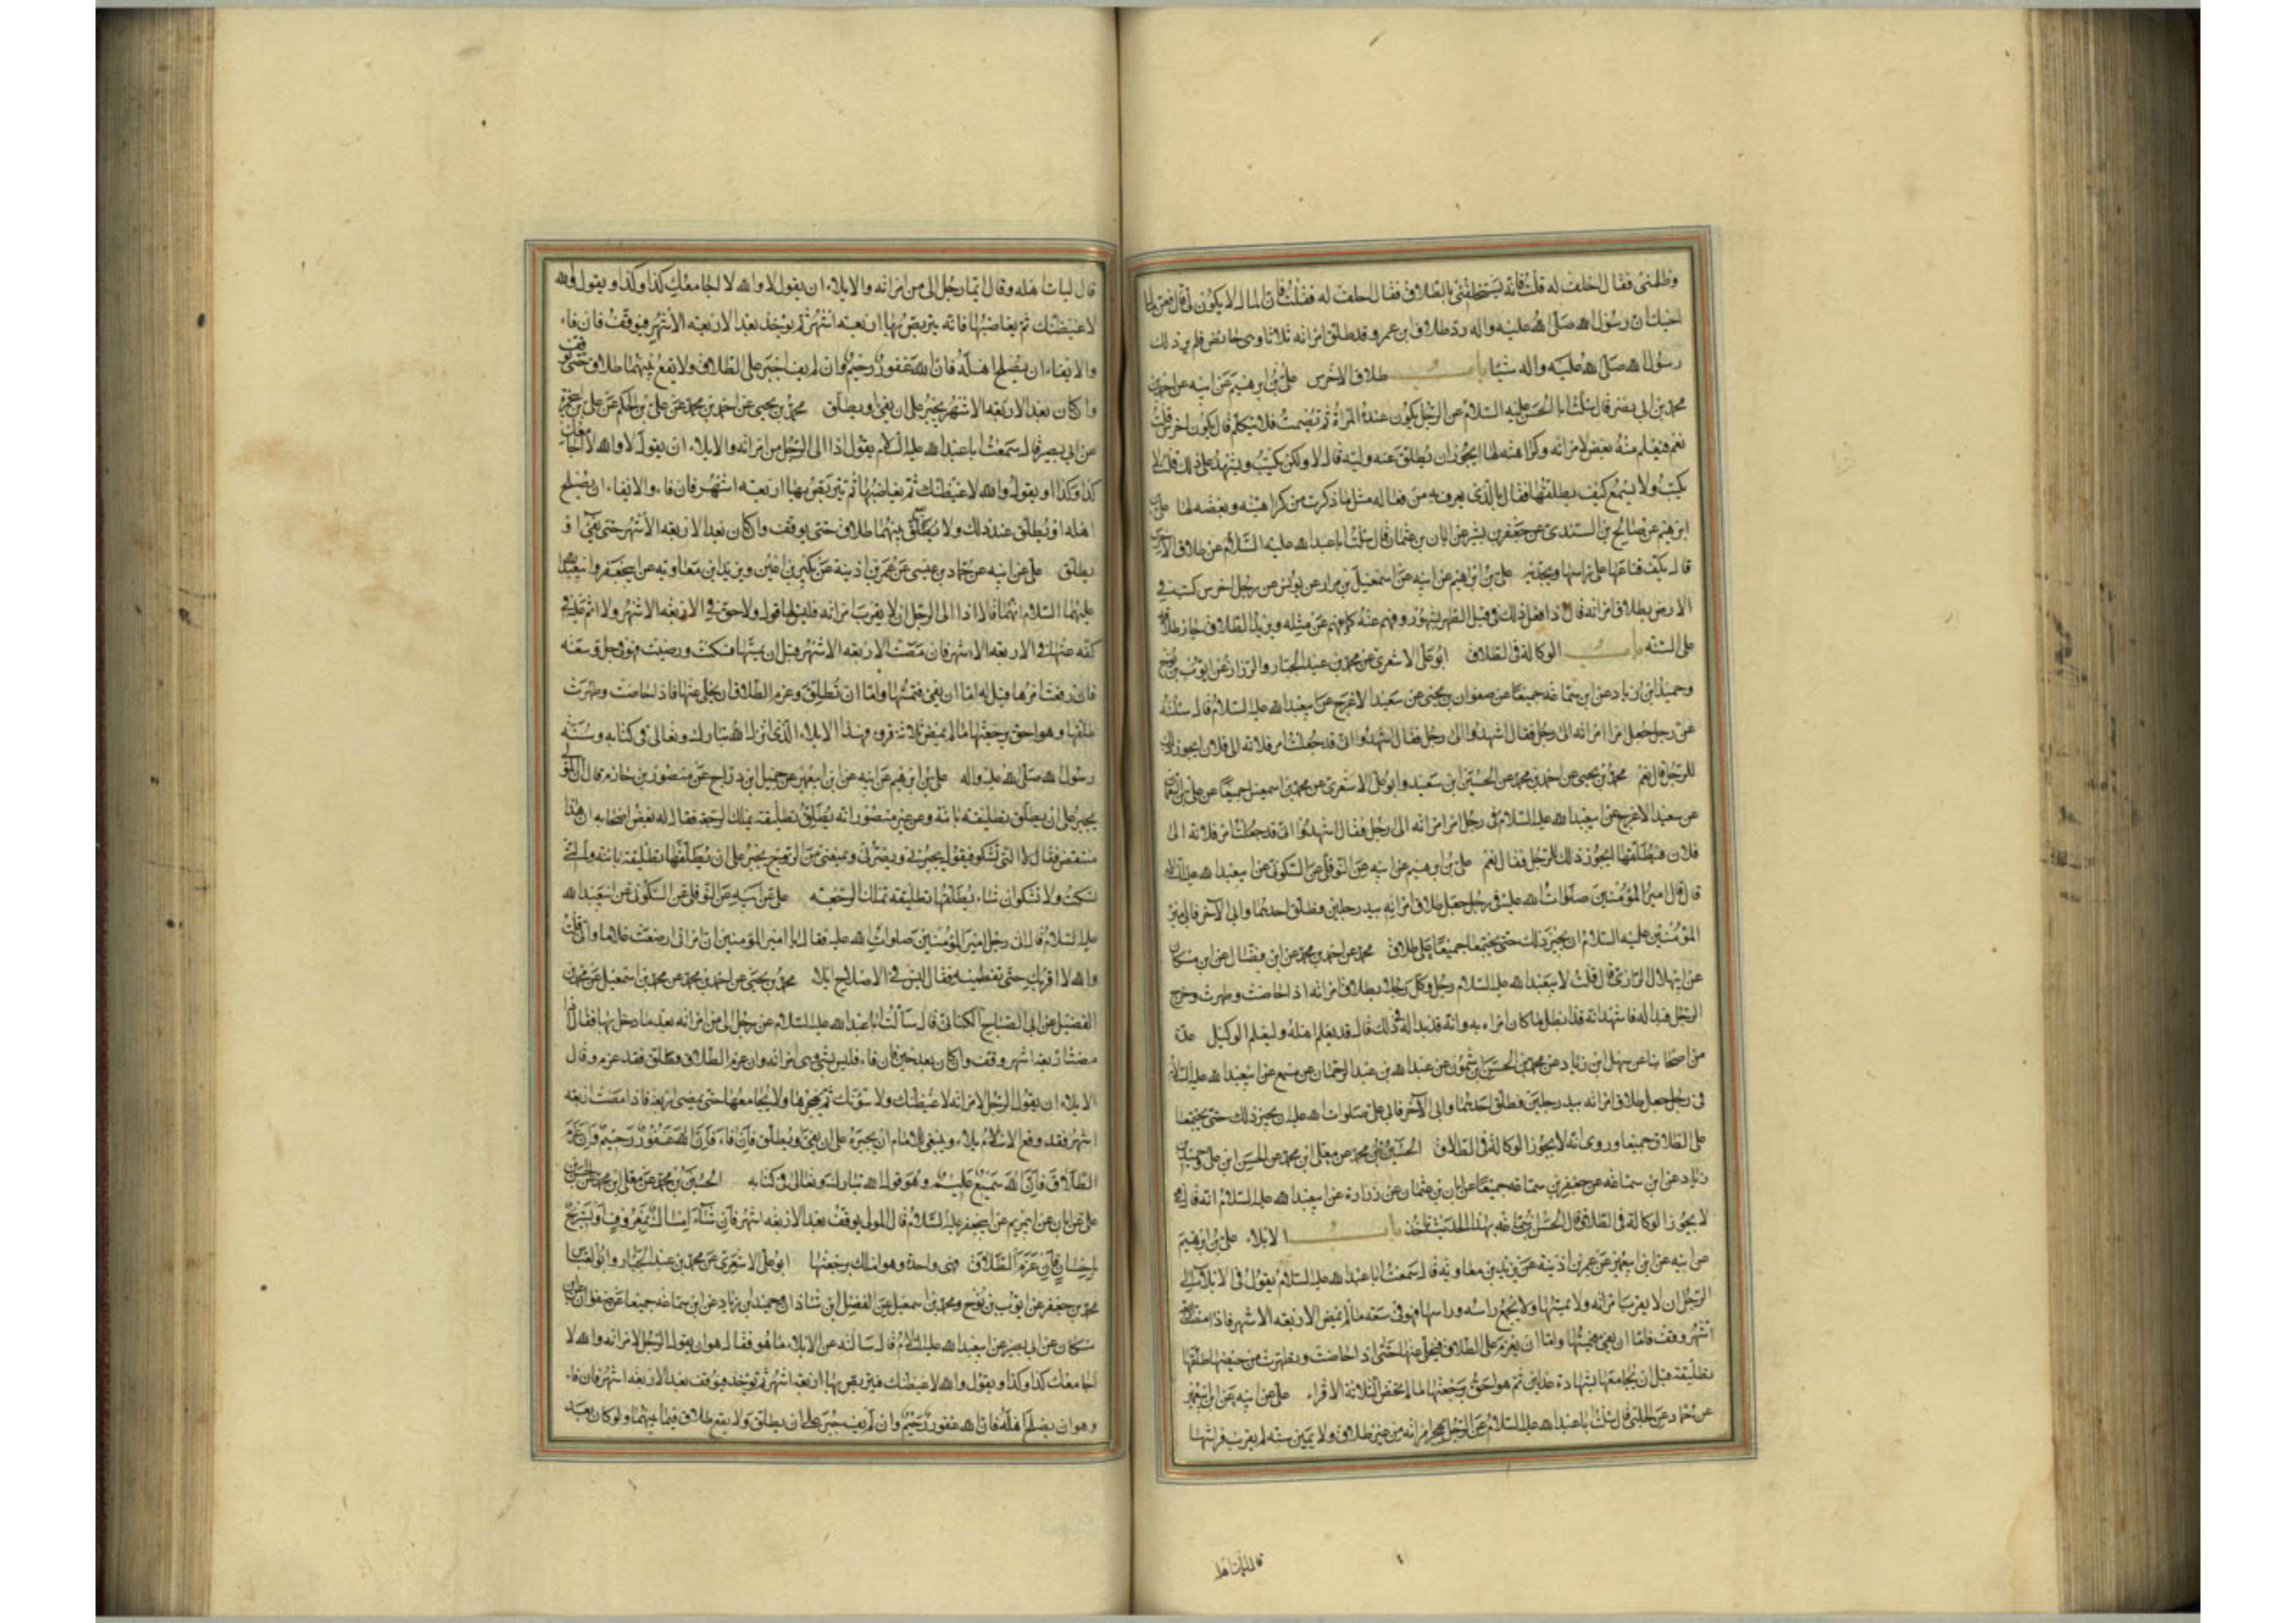 وظلمنى فقال احلف له قلت فانه يستحلفنى بالطلاق فقال احلف له فقلت فان المال لا يكون لى قال فعن مال
اخيك ان رسول الله صلى الله عليه واله رد طلاق ابن عمر وقد طلق امراته ثلاثا وهى حايض فلم ير ذلك
رسول الله صلى الله عليه واله شيئا باب طلاق الاخرس على بن ابرهيم عن ابيه عن احمد بن
محمد بن ابى نصر قال سئلت ابا الحسن عليه السلام عن الرجل يكون عنده المراة ثم يصمت فلا يتكلم قال يكون اخرس قلت
نعم فيعلم منه بغض لامراته وكراهته لها ايجوز ان يطلق عنه وليه قال لا ولكن يكتب ويشهد على ذلك قلت لا
يكتب ولا يسمع كيف يطلقها فقال بالذى يعرف به من فعاله مثل ما ذكرت من كراهته وبغضه لها على بن
ابرهيم عن صالح بن السندى عن جعفر بن بشير عن ابان بن عثمان قال سئلت ابا عبد الله عليه السلام عن طلاق الاخرس
قال يلف قناعها على راسها ويجذبه على بن ابرهيم عن ابيه عن اسمعيل بن مرار عن يونس عن رجل اخرس كتب فى
الارض بطلاق امراته قال اذا فعل ذلك فى قبل الطهر بشهود وفهم عنه كما يفهم عن مثله ويريد الطلاق جاز طلاقه
على السنه باب الوكالة فى الطلاق ابو على الاشعرى عن محمد بن عبد الجبار والرزاز عن ايوب بن نوح
وحميد بن زياد عن ابن سماعه جميعا عن صفوان بن يحيى عن سعيد الاعرج عن ابيعبد الله عليه السلام قال سئلته
عن رجل جعل امر امراته الى رجل فقال اشهدوا انى قد جعلت امر فلانه الى فلان ايجوز ذلك
للرجل قال نعم محمد بن يحيى عن احمد بن محمد عن الحسين ابن سعيد وابو على الاشعرى عن محمد بن اسمعيل جميعا عن على بن النعمان
عن سعيد الاعرج عن ابيعبد الله عليه السلام فى رجل امر امراته الى رجل فقال اشهدوا انى قد جعلت امر فلانه الى
فلان فيطلقها ايجوز ذلك للرجل فقال نعم على بن ابرهيم عن ابيه عن النوفلى عن السكونى عن ابيعبد الله عليه السلام
قال قال امير المؤمنين صلوات الله عليه فى رجل جعل طلاق امراته بيد رجلين وطلق احدهما وابى الآخر فابى امير
المؤمنين عليه السلام ان يجيز ذلك حتى يجتمعا جميعا على طلاق محمد عن احمد بن محمد عن ابن فضال عن ابن مسكان
عن ابيهلال الرازى قال قلت لابيعبد الله عليه السلام رجل وكل رجلا بطلاق امراته اذا حاضت وطهرت وخرج
الرجل فبدا له فاشهد انه قد ابطل ما كان امره به وانه قد بدا له فى ذلك قال قد فليعلم اهله وليعلم الوكيل عدة
من اصحابنا عن سهل ابن زياد عن محمد بن الحسن بن شمون عن عبد الله بن عبد الرحمان عن مسمع عن ابيعبد الله عليه السلام
فى رجل جعل طلاق امراته بيد رجلين فطلق احدهما وابى الآخر فابى على صلوات الله عليه ان يجيز ذلك حتى يجتمعا
على الطلاق جميعا وروى انه لا يجوز الوكالة فى الطلاق الحسين بن محمد عن معلى ابن محمد عن الحسن ابن على وحميد بن
زياد عن ابن سماعه عن جعفر بن سماعه جميعا عن ابان بن عثمان عن زرارة عن ابيعبد الله عليه السلام انه قال
لا يجوز الوكالة فى الطلاق قال الحسن بن سماعه بهذا الحديث ناخذ باب الايلاء على بن ابرهيم
عن ابيه عن ابن ابيعمير عن عمر بن اذينة عن بريد بن معاويه قال سمعت ابا عبد الله عليه السلام يقول فى الايلاء اذا الى
الرجل ان لا يقرب امراته ولا يمسها ولا يجمع راسه وراسها فهو فى سعه ما لم يمض الاربعه الاشهر فاذا مضت اربعه
اشهر وقف فاما ان يفئ فيمسها واما ان يعزم على الطلاق فيخلى عنها حتى اذا حاضت وتطهرت من حيضها طلقها
تطليقة قبل ان يجامعها بشهادة عدلين ثم هو احق برجعتها ما لم تمض الثلاثة الاقراء على عن ابيه عن ابن ابيعمير
عن حماد عن الحلبى قال سئلت ابا عبد الله عليه السلام عن الرجل يهجر امراته من غير طلاق ولا يمين سنه لم يقرب فراشها
قال ليات اهله
قال ليات اهله وقال ايما رجل الى من امراته والايلاء ان يقول لا والله لا اجامعك كذا وكذا ويقول والله
لاغيظنك ثم يغاضبها فانه يتربص بها اربعه اشهر ثم يؤخذ بعد الاربعه الاشهر فيوقف فان فاء
والايفاء ان يصلح اهله فان الله غفور رحيم وان لم يف اجبر على الطلاق ولا يقع بينهما طلاق حتى يوقف
وان كان بعد الاربعه الاشهر يجبر على ان يفئ او يطلق محمد بن يحيى عن احمد بن محمد عن على بن الحكم عن على بن ابى حمزه
عن ابى بصير قال سمعت ابا عبد الله عليه السلام يقول اذا الى الرجل من امراته والايلاء ان يقول لا والله لا اجامعك
كذا وكذا او يقول والله لاغيظنك ثم يغاضبها ثم يتربص بها اربعه اشهر فان فاء والايفاء ان يصلح
اهله او يطلق عند ذلك ولا يقع بينهما طلاق حتى يوقف وان كان بعد الاربعه الاشهر حتى يفئ او
يطلق على عن ابيه عن حماد بن عيسى عن عمر بن اذينة عن بكير بن اعين وبريد ابن معاويه عن ابيجعفر وابيعبد الله
عليهما السلام انهما قالا اذا الى الرجل ان لا يقرب امراته فليس لها قول ولا حق فى الاربعه الاشهر ولا اثم عليه فى
كفه عنها فى الاربعه الاشهر فان مضت الاربعه الاشهر قبل ان يمسها فسكتت ورضيت فهو فى حل وسعه
فان رفعت امرها قيل له اما ان يفئ فتمسها واما ان تطلق وعزم الطلاق ان يخلى عنها فاذا حاضت وطهرت
طلقها وهو احق برجعتها ما لم يمض ثلاثه قروء فهذا الايلاء الذى انزل الله تبارك وتعالى فى كتابه وسنه
رسول الله صلى الله عليه واله على بن ابرهيم عن ابيه عن ابن ابيعمير عن جميل ابن دراج عن منصور بن حازم قال ان المولى
يجبر على ان يطلق تطليقة باينة وعن غير منصور انه يطلق تطليقة يملك الرجعة فقال له بعض اصحابه ان هذا
منتقض فقال لا التى تشكو فيقول يجبرنى ويضرنى ويمنعنى من الزوج يجبر على ان يطلقها تطليقة باينة والتى
تسكت ولا تشكو ان شاء يطلقها تطليقة تملك الرجعه على عن ابيه عن النوفلى عن السكونى عن ابيعبد الله
عليه السلام قال اتى رجل امير المؤمنين صلوات الله عليه فقال يا امير المؤمنين ان امراتى ارضعت غلاما وانى قلت
والله لا اقربك حتى تفطميه فقال ليس فى الاصلاح ايلاء محمد بن يحيى عن احمد بن محمد عن محمد بن اسمعيل عن محمد بن
الفضيل عن ابى الصباح الكنانى قال سالت ابا عبد الله عليه السلام عن رجل الى من امراته بعد ما دخل بها فقال اذا
مضت اربعه اشهر وقف وان كان بعد حين فان فاء فليس بشئ وهى امراته وان عزم الطلاق فطلق فقد عزم وقال
الايلاء ان يقول الرجل لامراته لاغيظنك ولاسوءنك ثم يهجرها ولا يجامعها حتى يمضى اربعه فاذا مضت اربعه
اشهر فقد وقع الايلاء وينبغى للامام ان يجبره على ان يفئ او يطلق فان فاء فان الله غفور رحيم وان عزم
الطلاق فان الله سميع عليم وهو قول الله تبارك وتعالى فى كتابه الحسين بن محمد عن معلى ابن محمد عن الحسن بن
على عن ابان عن ابى مريم عن ابيجعفر عليه السلام قال المولى يوقف بعد الاربعه اشهر فان شاء امساك بمعروف او تسريح
باحسان فان عزم الطلاق فهى واحدة وهو املك برجعتها ابو على الاشعرى عن محمد بن عبد الجبار وابو العباس
محمد بن جعفر عن ايوب بن نوح ومحمد بن اسمعيل عن الفضل ابن شاذان وحميد ابن زياد عن ابن سماعه جميعا عن صفوان عن ابن
مسكان عن ابى بصير عن ابيعبد الله عليه السلام قال سالته عن الايلاء ما هو فقال هو ان يقول الرجل لامراته والله لا
اجامعك كذا وكذا ويقول والله لاغيظنك فيتربص بها اربعه اشهر ثم يؤخذ فيوقف بعد الاربعه اشهر فان فاء
وهو ان يصلح اهله فان الله غفور رحيم وان لم يف جبر على ان يطلق ولا يقع طلاق فيما بينهما ولو كان بعد